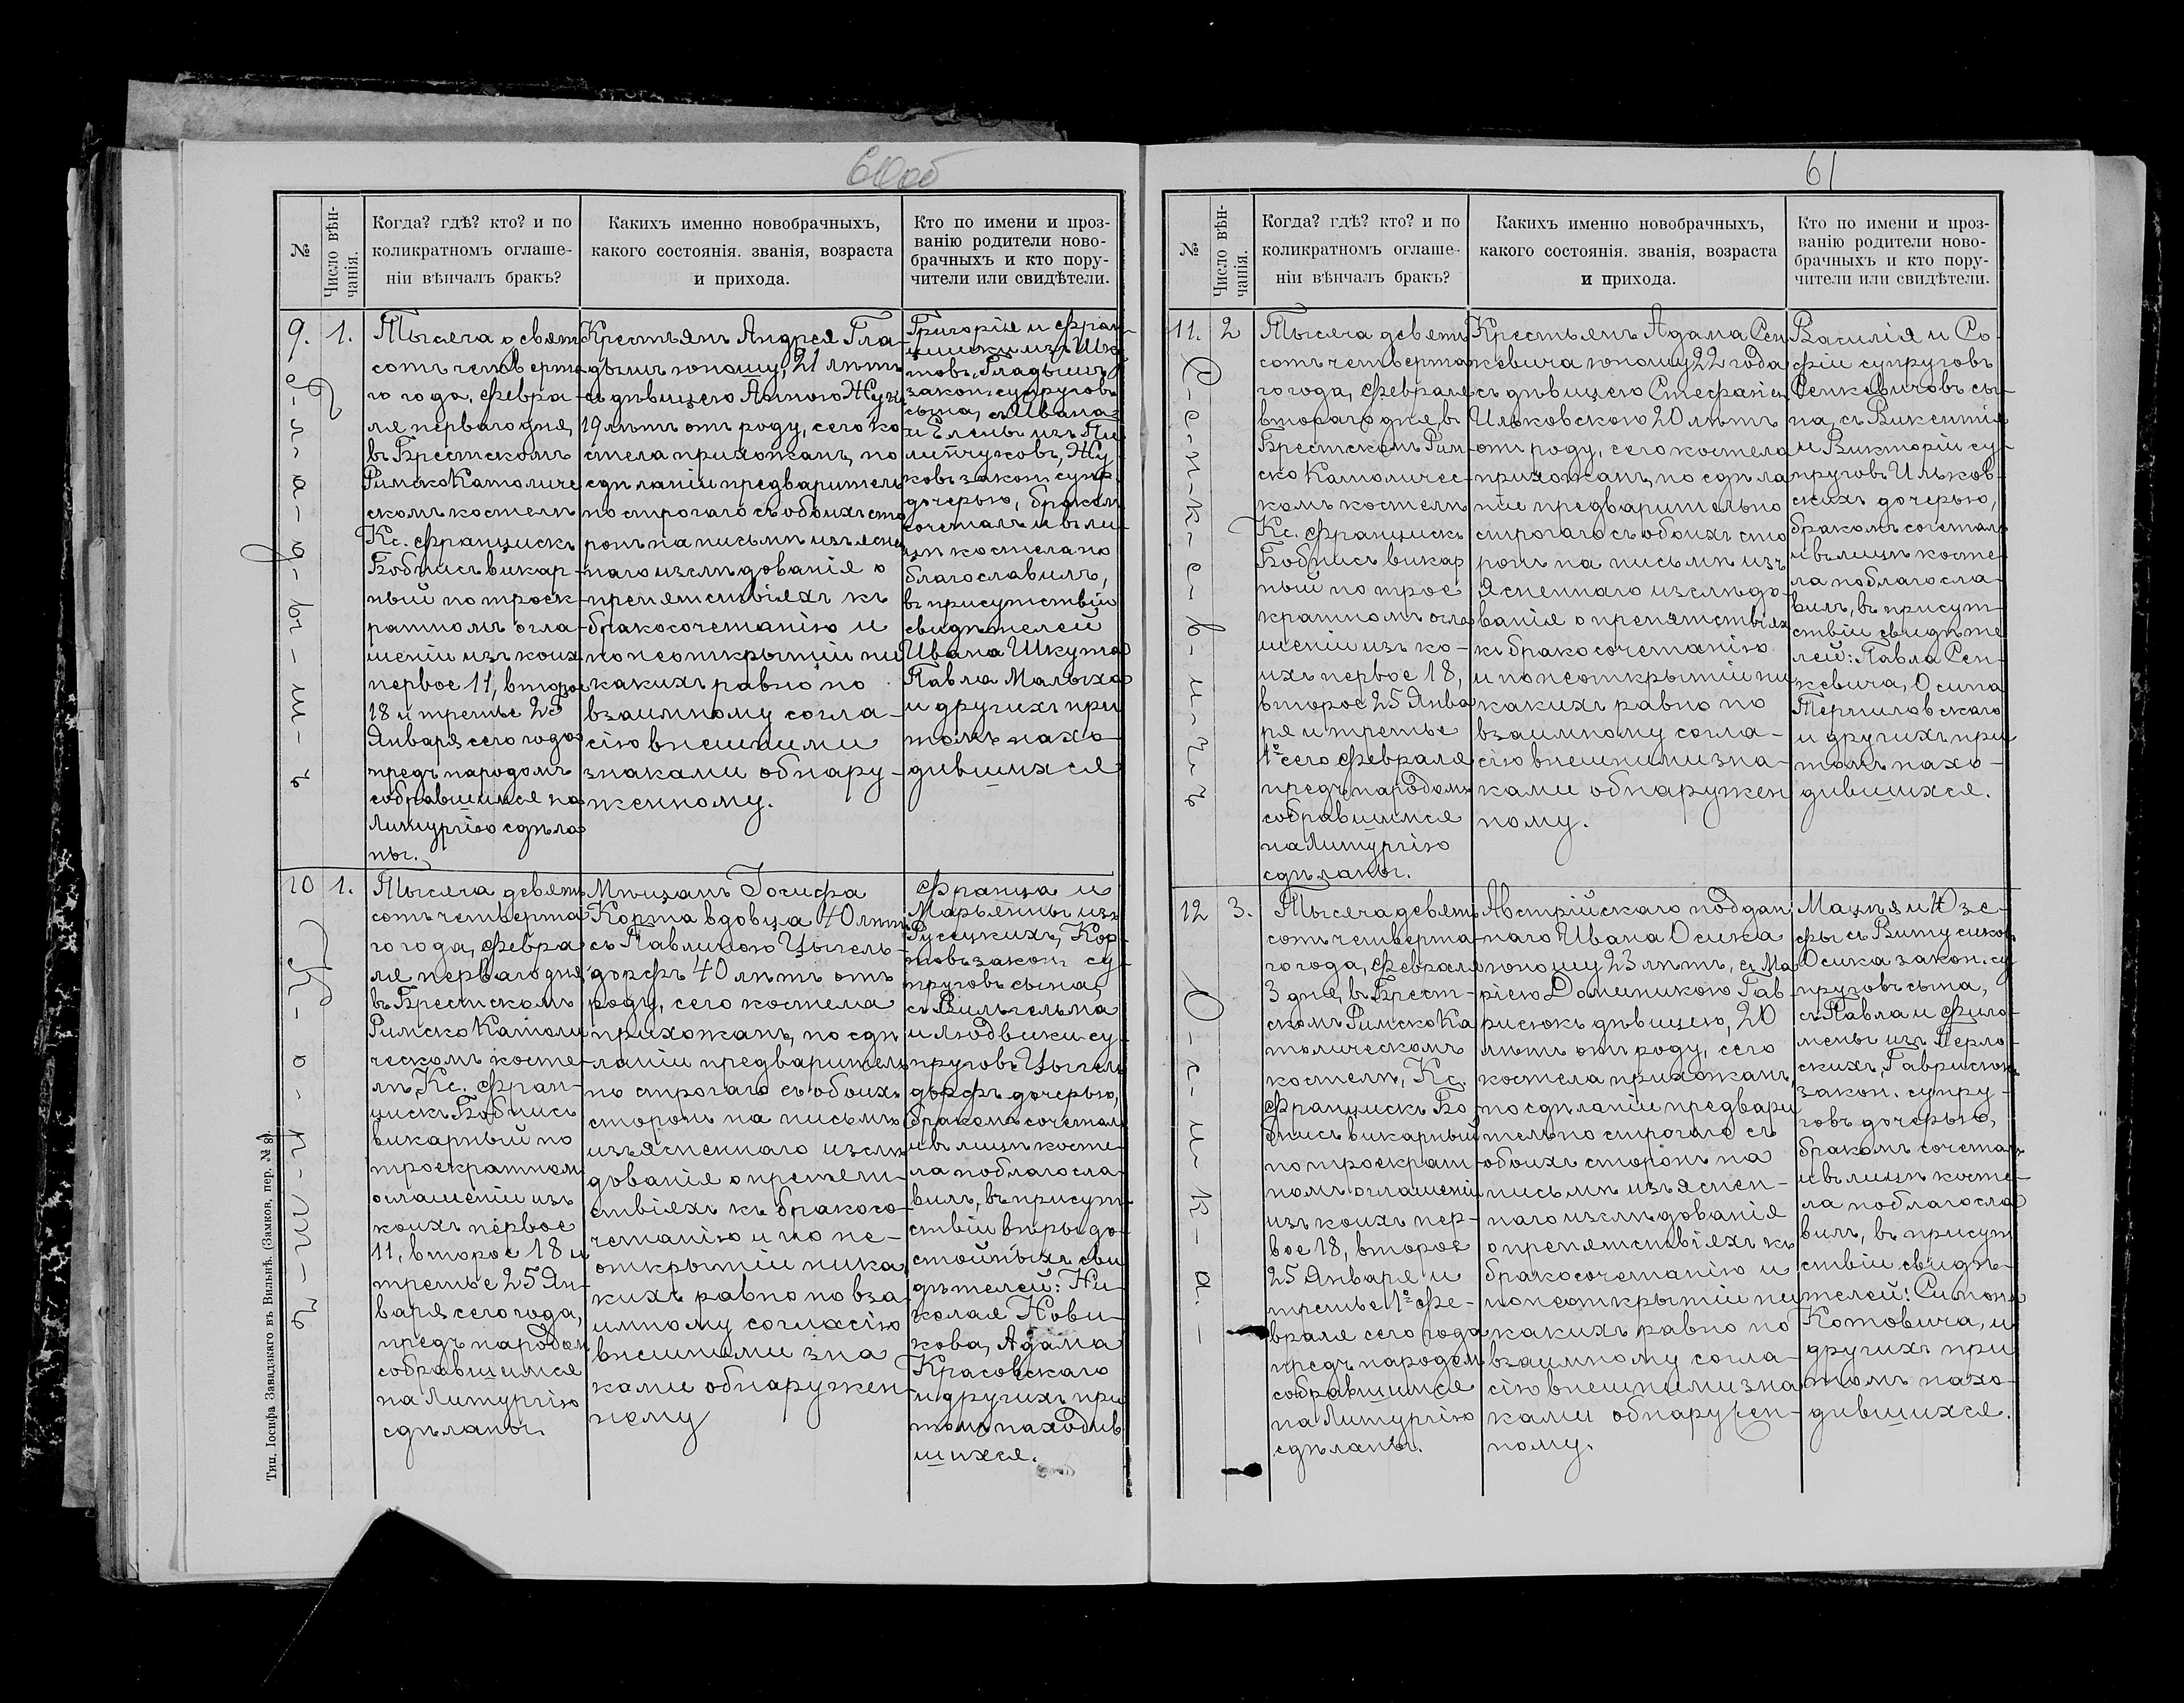 60об
№
Число вѣн-
чанія.
Когда? гдѣ? кто? и по
коликратномъ оглаше-
ніи вѣнчалъ бракъ?
Какихъ именно новобрачныхъ,
какого состоянія. званія, возраста
и прихода.
Кто по имени и проз-
ванію родители ново-
брачныхъ и кто пору-
чители или свидѣтели.
9.
1.
Тысяча девят
сотъ четверта
го года, Февра-
ля перваго дня,
въ Брестскомъ
РимскоКатоличе
скомъ костелѣ
Кс. Францискъ
Бобнисъ викар-
ный по троек-
ратномъ огла
шеніи изъ коих
первое 11, второе
18 и третье 25
Января сего года
предъ народомъ
собравшимся на
Литургію сдѣла
ны.
Крестьянъ Андрея Гла-
дышъ юношу, 21 лѣтъ
съ дѣвицею Анною Жукъ
19 лѣтъ отъ роду, сего ко
стела прихожанъ, по
сдѣланіи предваритель
но строгаго съ обоихъ сто
ронъ на письмѣ изъясне
наго изслѣдованія о
препятствіяхъ къ
бракосочетанію и
по неоткрытіи ни
какихъ равно по
взаимному согла-
сію внешними
знаками обнару-
женному.
Григорія и Фран-
цишки изъ Шку
товъ, Гладышъ
закон: супруговъ
сына, съ Ивана
и Елены изъ Пи
липчуковъ, Жу
ковъ закон: супр.
дочерью, бракомъ
сочеталъ и въ ли
цѣ костела по
благославилъ,
въ присутствіи
свидѣтелей
Ивана Шкута
Павла Малыха
и другихъ при
томъ нахо-
дившихся
10
1.
Тысяча девят
сотъ четверта
го года, Февра
ля перваго дня
въ Брестскомъ
РимскоКатоли
ческомъ косте-
лѣ, Кс. Фран-
цискъ Бобнисъ
викарный по
троекратном
оглашеніи изъ
коихъ первое
11, второе 18 и
третье 25 Ян-
варя сего года,
предъ народом
собравшимся
на Литургію
сдѣланы.
Мѣщанъ Іосифа
Корта вдовца 40 лѣтъ
съ Павлиною Цыгель-
дорфъ 40 лѣтъ отъ
роду, сего костела
прихожанъ, по сдѣ
ланіи предваритель
но строгаго съ обоихъ
сторонъ на письмѣ
изъясненнаго изслѣ
дованія о препят-
ствіяхъ къ бракосо-
четанію и по не-
открытіи ника
кихъ равно по вза
имному согласію
внешними зна
ками обнаружен-
ному
Франца и
Марьянны изъ
Русецкихъ, Кор-
товъ закон: су-
пруговъ сына,
съ Вильгельма
и Людвики су-
пруговъ Цыгель
дорфъ дочерью,
бракомъ сочеталъ
и въ лицѣ косте-
ла поблагосла-
вилъ, въ присут-
ствіи вѣры до-
стойныхъ сви
дѣтелей: Ни-
колая Нови-
кова, Адама
Красовскаго
и другихъ при
томъ находив
шихся.
Тип. Іосифа Завадзкаго въ Вильнѣ. (Замков, пер. № 8)
61
№
Число вѣн-
чанія.
Когда? гдѣ? кто? и по
коликратномъ оглаше-
ніи вѣнчалъ бракъ?
Какихъ именно новобрачныхъ,
какого состоянія. званія, возраста
и прихода.
Кто по имени и проз-
ванію родители ново-
брачныхъ и кто пору-
чители или свидѣтели.
11.
2
С-е-н-к-е-в-и-ч-ъ
Тысяча девят
сотъ четверта
го года, Февраля
втораго дня, въ
Брестскомъ Рим-
ско Католичес-
комъ костелѣ
Кс. Францискъ
Бобнисъ викар
ный по трое
кратномъ огла
шеніи изъ ко-
ихъ первое 18,
второе 25 Янва
ря и третье
1го сего Февраля
предъ народомъ
собравшимся
на Литургію
сдѣланы.
Крестьянъ Адама Сен
кевича юношу 22 года
съ дѣвицею Стефаніею
Ильковскою 20 лѣтъ
отъ роду, сего костела
прихожанъ, по сдѣла
ніи предварительно
строгаго съ обоихъ сто
ронъ на письмѣ изъ
ясненнаго изслѣдо-
ванія о препятствіях
къ бракосочетанію
и по неоткрытіи ни
какихъ равно по
взаимному согла-
сію внешними зна-
ками обнаружен
ному.
Василія и Со-
фіи супруговъ
Сенкевичовъ сы-
на, съ Викентія
и Викторіи су-
пруговъ Ильков-
скихъ дочерью,
бракомъ сочеталъ
и въ лицѣ косте-
ла поблагосла-
вилъ, въ присут-
ствіи свидѣте
лей: Павла Сен-
кевича, Осипа
Терпиловскаго
и другихъ при
томъ нахо-
дившихся.
12
3.
О-с-и-к-а.-
Тысяча девят
сотъ четверта-
го года, Февраля
3 дня, въ Брест-
скомъ РимскоКа
толическомъ
костелѣ, Кс.
Францискъ Бо
бнисъ викарный
по троекрат-
номъ оглашеніи
изъ коихъ пер-
вое 18, второе
25 Января и
третье 1го Фе-
враля сего года
предъ народом
собравшимся
на Литургію
сдѣланы.
Австрійскаго поддан
наго Ивана Осика
юношу 23 лѣтъ, съ Ма
ріею Доминикою Гав-
рисюкъ дѣвицею, 20
лѣтъ отъ роду, сего
костела прихожанъ,
по сдѣланіи предвари
тельно строгаго съ
обоихъ сторонъ на
письмѣ изъяснен-
наго изслѣдованія
о препятствіяхъ къ
бракосочетанію и
по неоткрытіи ни
какихъ равно по
взаимному согла-
сію внешними зна
ками обнаружен-
ному.
Мацѣя и Юзе-
фы съ
Осика закон. су
пруговъ сына,
съ Павла и Фило-
мены изъ
скихъ, Гаврисюкъ
закон. супру-
говъ дочерью,
бракомъ сочеталъ
и въ лицѣ косте-
ла поблагосла
вилъ, въ присут
ствіи свидѣ-
телей: Симона
Котовича, и
другихъ при
томъ нахо-
дившихся.